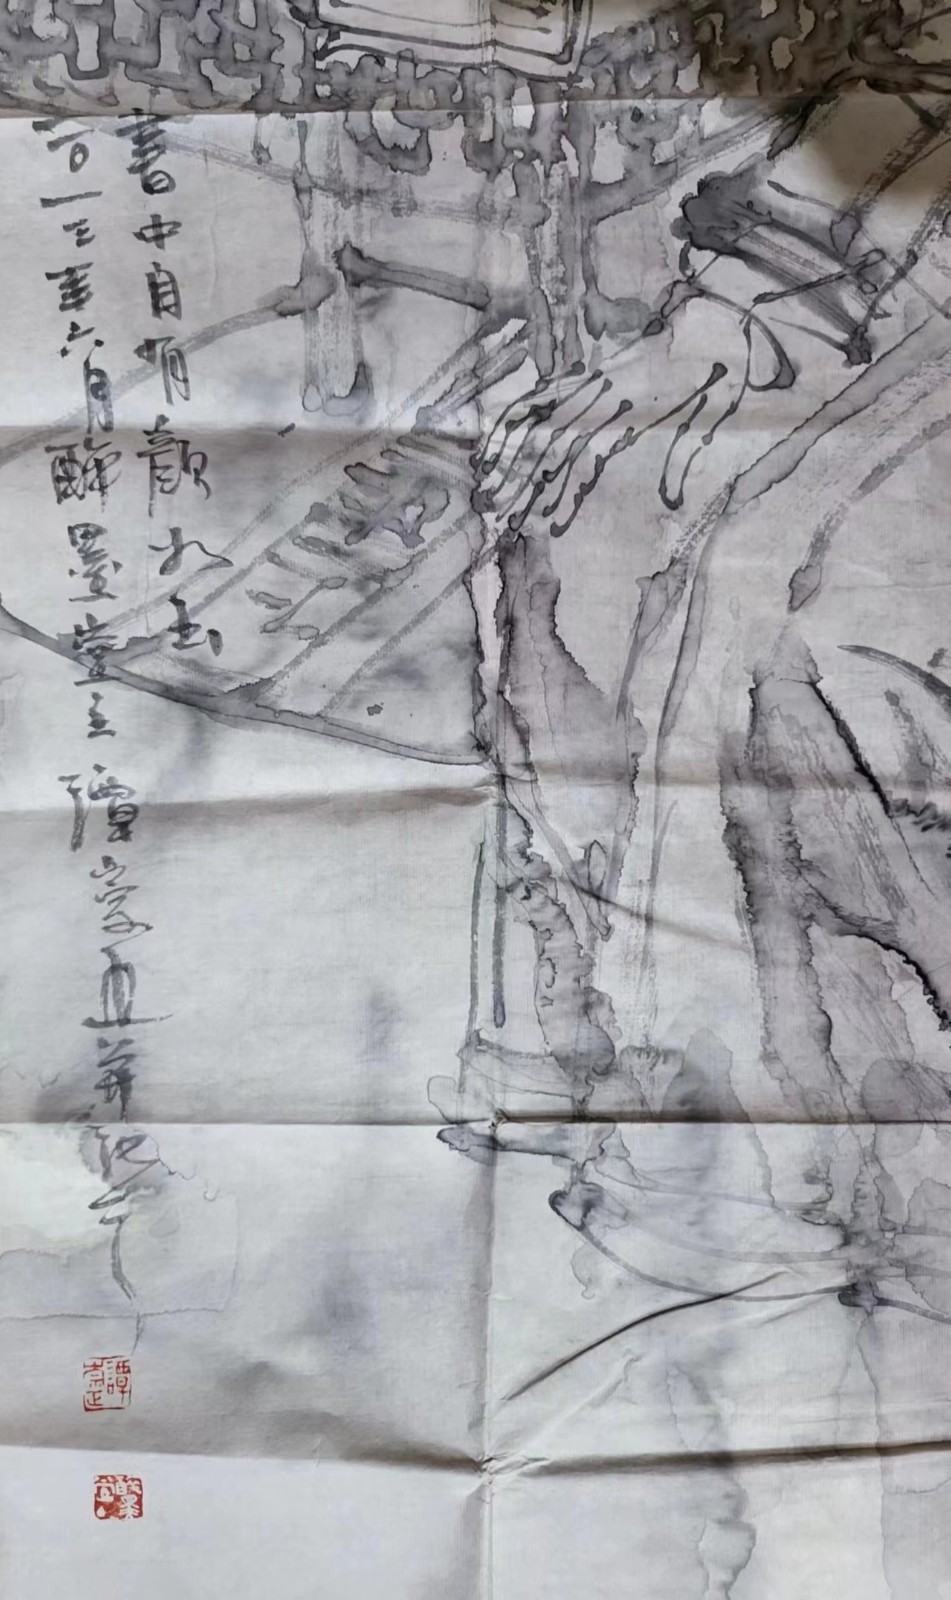 書中自有顏如玉
二〇一三年六月醉墨堂主譚崇正並記於
譚崇正